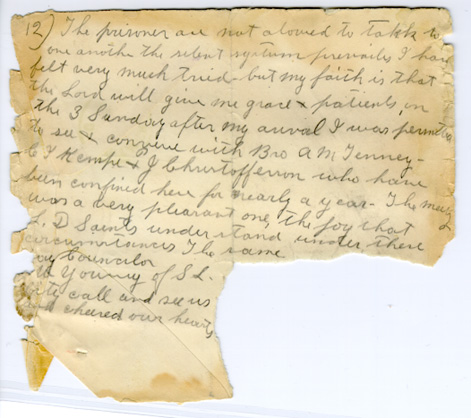 12) The prisoner are not alowed to takk to
one another the silent systum prevailes I have
felt very much tried - but my faith is that
the Lord will give me grace & patients, on
the 3 Sunday after my arival I was permited
to see & converse with Bro A M Tenney -
C I Kempe & J Christofferson who have
been confined here for nearly a year - The meeting
was a very pleasant one, the joy that
L. D Saints understand under these
circumstances The same
Councilor
Young of S L.
call and see us
cheared our hearts